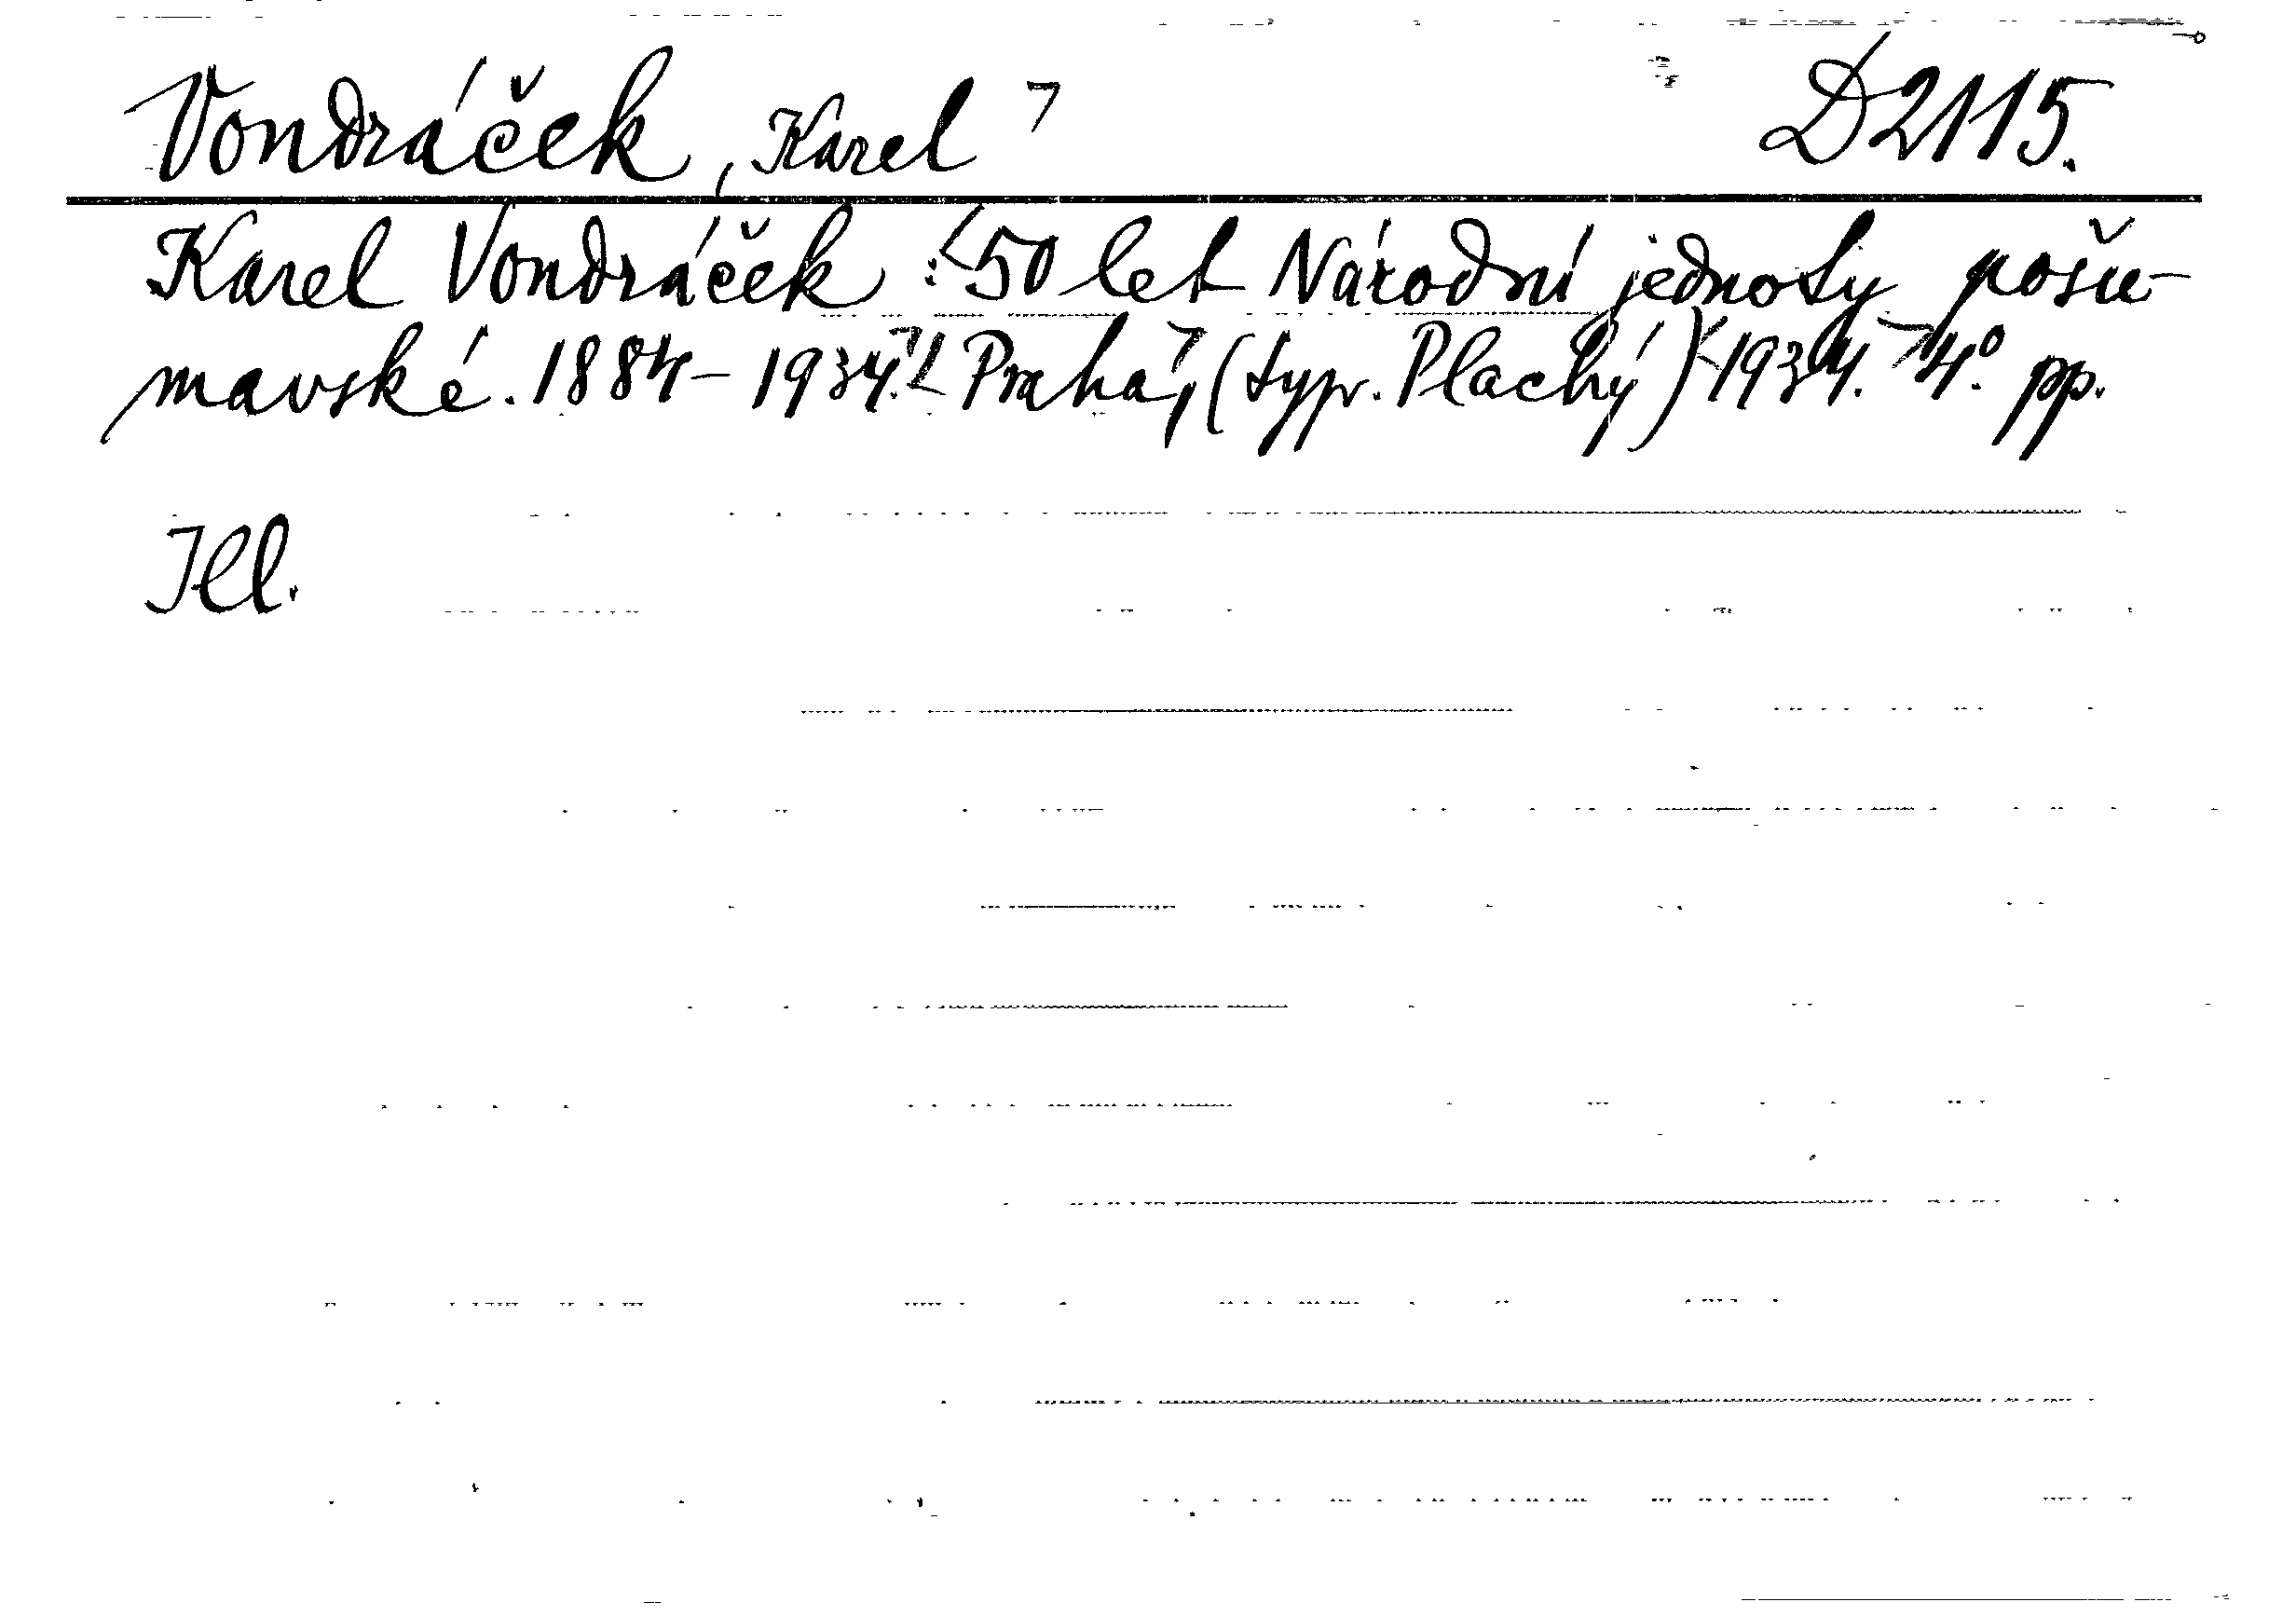 Vondráček, Karel D2115.
Karel Vondráček: 50 let Národní jednoty pošu-
mavské. 1884-1934. Praha, (typ. Plachý) 1934. 4° pp.
Ill.